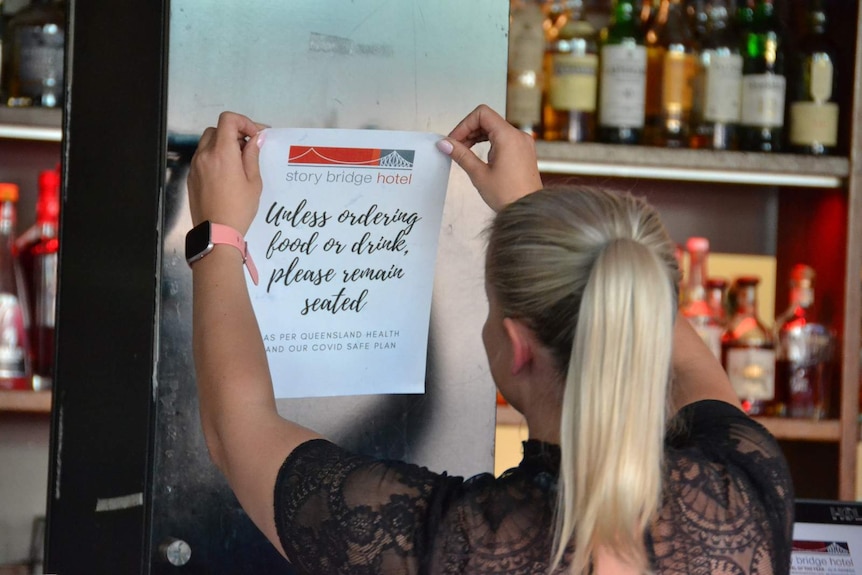 story bridge hotel
Unless ordering
food or drink,
please remain
seated
AS PER QUEENSLAND HEALTH
AND OUR COVID SAFE PLAN
story bridge hotel